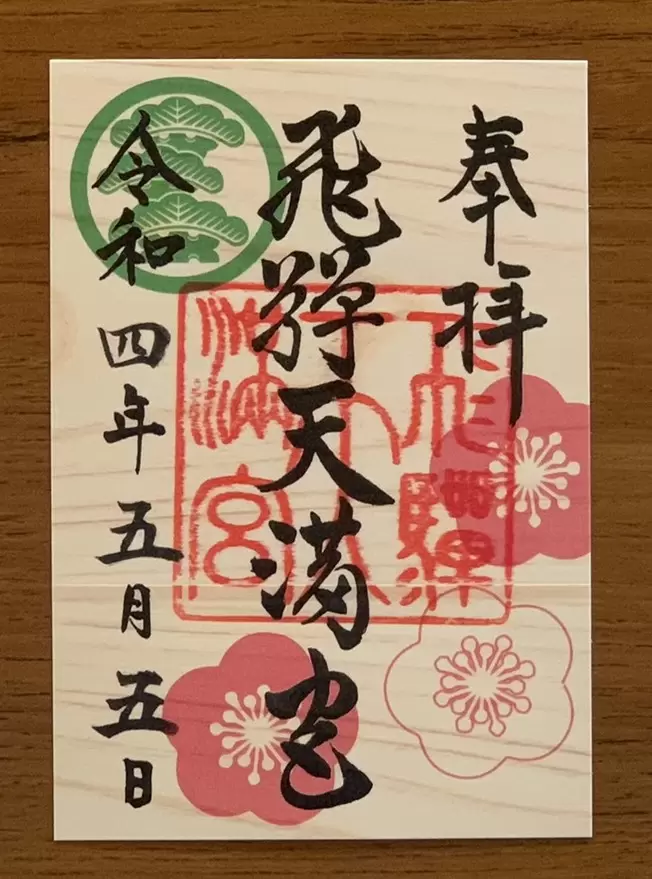 奉拝
飛騨天満宮
飛騨天満宮
令和四年五月五日